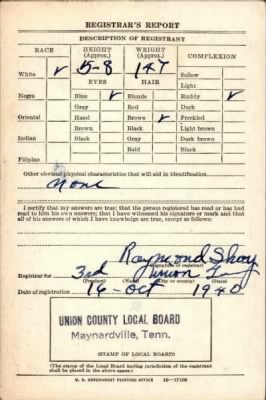 REGISTRAR'S REPORT
DESCRIPTION OF REGISTRANT
RACE HEIGHT (Approx.) WEIGHT (Approx.) COMPLEXION
White ✓ 5-8 147 Sallow
EYES HAIR Light
Negro Blue ✓ Blonde Ruddy ✓
Gray Red Dark
Oriental Hazel Brown ✓ Freckled
Brown Black Light brown
Indian Black Gray Dark brown
Bald Black
Filipino
Other obvious physical characteristics that will aid in identification
None
I certify that my answers are true; that the person registered has read or has had
read to him his own answers; that I have witnessed his signature or mark and that
all of his answers of which I have knowledge are true, except as follows:
Raymond
(Signature of registrar)
Registrar for 3rd Union
(Precinct) (Ward) (City or County) (State)
Date of registration 16 - Oct 1940
UNION COUNTY LOCAL BOARD
Maynardville, Tenn.
(STAMP OF LOCAL BOARD)
(The stamp of the Local Board having jurisdiction of the registrant
shall be placed in the above space.)
U. S. GOVERNMENT PRINTING OFFICE 16-17105